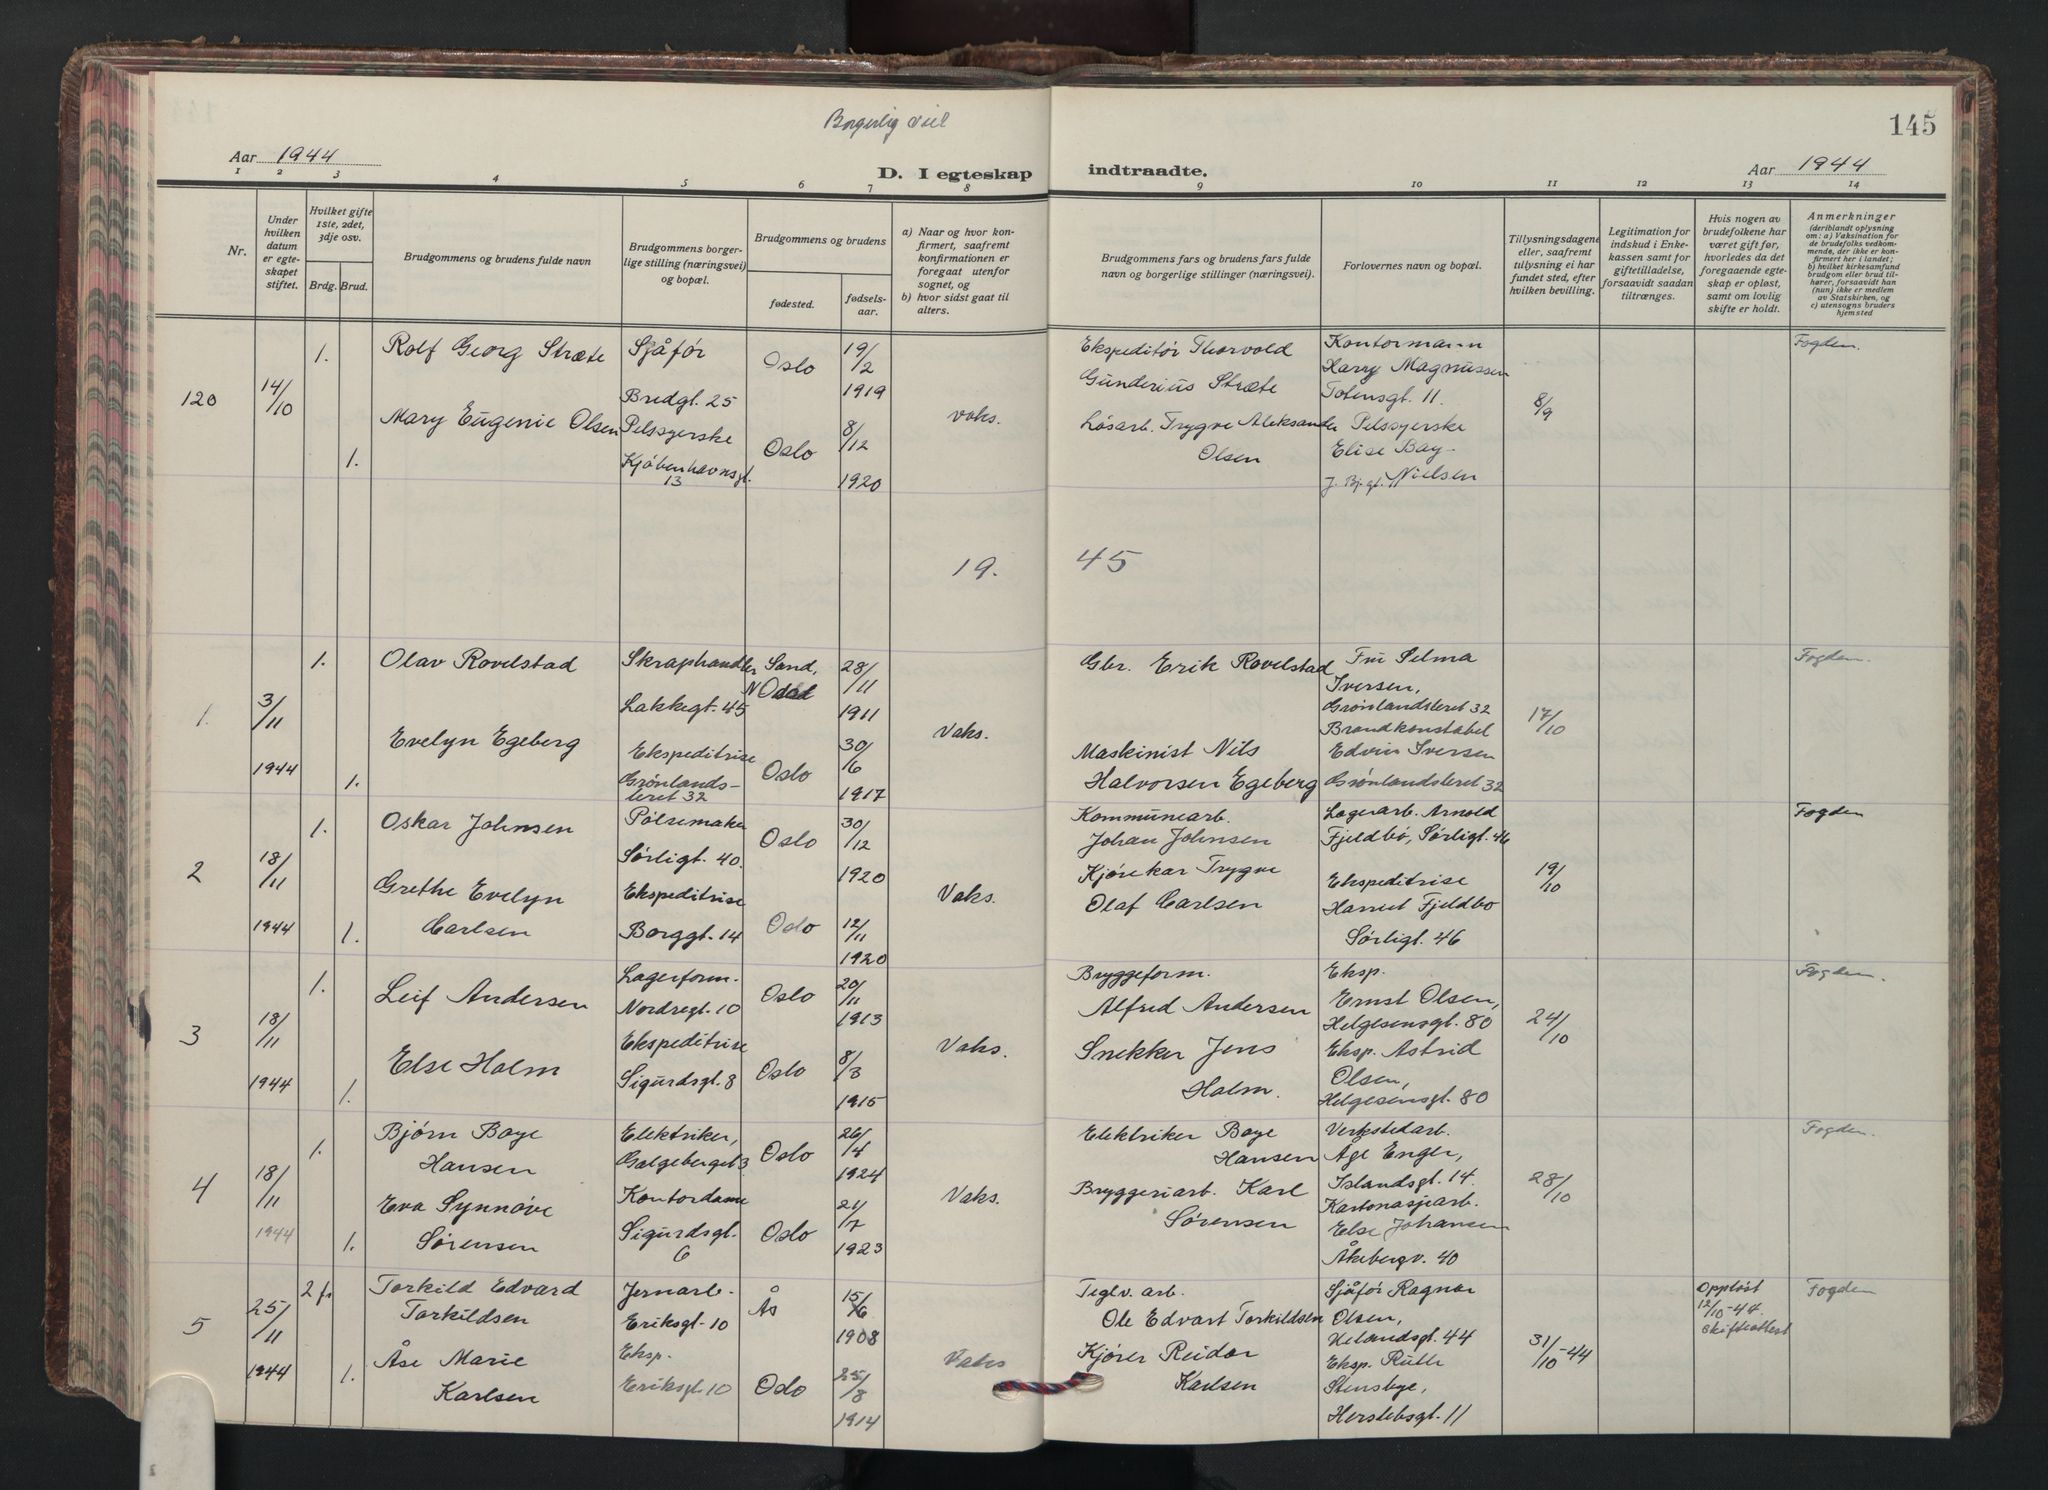 Borgerlig viet
145
Aar 1944
D. I egteskap indtraadte.
Aar 1944
1 2 3 4 5 6 7 8 9 10 11 12 13 14
Nr.
Under hvilken datum er egteskapet stiftet.
Hvilket gifte 1ste, 2det, 3dje osv.
Brdg. Brud.
Brudgommens og brudens fulde navn
Brudgommens borgerlige stilling (næringsvei) og bopæl.
Brudgommens og brudens
fødested.
fødselsaar.
a) Naar og hvor konfirmert, saafremt konfirmationen er foregaat utenfor sognet, og
b) hvor sidst gaat til alters.
Brudgommens fars og brudens fars fulde navn og borgerlige stillinger (næringsvei).
Forlovernes navn og bopæl.
Tillysningsdagene eller, saafremt tillysning ei har fundet sted, efter hvilken bevilling.
Legitimation for indskud i Enkekassen samt for giftetilladelse, forsaavidt saadan tiltrænges.
Hvis nogen av brudefolkene har været gift før, hvorledes da det foregaaende egteskap er opløst, samt om lovlig skifte er holdt.
Anmerkninger (deriblandt oplysning om: a) Vaksination for de brudefolks vedkommende, der ikke er konfirmert her i landet; b) hvilket kirkesamfund brudgom eller brud tilhører, forsaavidt han (hun) ikke er medlem av Statskirken, og c) utensogns bruders hjemsted
120 14/10
1. Rolf Georg Stræte Sjåfør Bredgt. 25 Oslo 19/2 1919
Ekspeditør Thorvold Gunderius Stræte
Kontormann Harry Magnussen Totensgt. 11.
8/9
Fogden.
1. Mary Eugenie Olsen Pelssyerske Kjøbenhavnsgt. 13 Oslo 8/12 1920
vaks.
Løsarb. Trygve Aleksander Olsen
Pelssyerske Elise Bay-Nielsen
19. 45
1. 3/11 1944
1. Olav Rovelstad Skraphandler Lakkegt. 45 Sand, N Odal 28/11 1911
Gbr. Erik Rovelstad
Fru Selma Iversen, Grønlandsleret 32
17/10
Fogden.
1. Evelyn Egeberg Ekspeditrise Grønlandsleret 32 Oslo 30/6 1917
Vaks.
Maskinist Nils Halvorsen Egeberg
Brandkonstabel Edvin Iversen Grønlandsleret 32
2 18/11 1944
1. Oskar Johnsen Pølsemaker Sørligt. 40. Oslo 30/12 1920
Kommunearb. Johan Johnsen
Lagerarb. Arnold Fjeldbo, Sørligt. 46
19/10
Fogden
1. Grethe Evelyn Carlsen Ekspeditrise Borggt. 14 Oslo 12/11 1920
Vaks.
Kjørekar Trygve Olaf Carlsen
Ekspeditrise Harriet Fjeldbo Sørligt. 46
3 18/11 1944
1. Leif Andersen Lagerform. Nordregt. 10 Oslo 20/11 1913
Bryggeform. Alfred Andersen
Eksp. Ernst Olsen, Helgesensgt. 80
24/10
Fogden.
1. Else Holm Ekspeditrise Sigurdsgt. 8 Oslo 8/3 1915
Vaks.
Snekker Jens Holm.
Eksp. Astrid Olsen, Helgesensgt. 80
4 18/11 1944
1. Bjørn Boye Hansen Elektriker, Galgeberget 3 Oslo 26/4 1924
Elektriker Boye Hansen
Verkstedarb. Åge Enger, Islandsgt. 14.
28/10
Fogden.
1. Eva Synnøve Sørensen Kontordame Sigurdsgt. 6 Oslo 21/7 1923
Vaks.
Bryggeriarb. Karl Sørensen
Kartonasjearb. Else Johansen Åkebergv. 40
5 25/11 1944
2 fr Torkild Edvard Torkildsen Jernarb. Eriksgt. 10 Ås 15/6 1908
Teglv. arb. Ole Edvart Torkildsen
Sjåfør Ragnar Olsen, Helandsgt. 44
31/10-44
Oppløst 12/10-44. Skifteattest
Fogden
1. Åse Marie Karlsen Eksp. Eriksgt. 10 Oslo 25/8 1914
Vaks
Kjører Reidar Karlsen
Eksp. Ruth Stensbye, Herslebsgt. 11